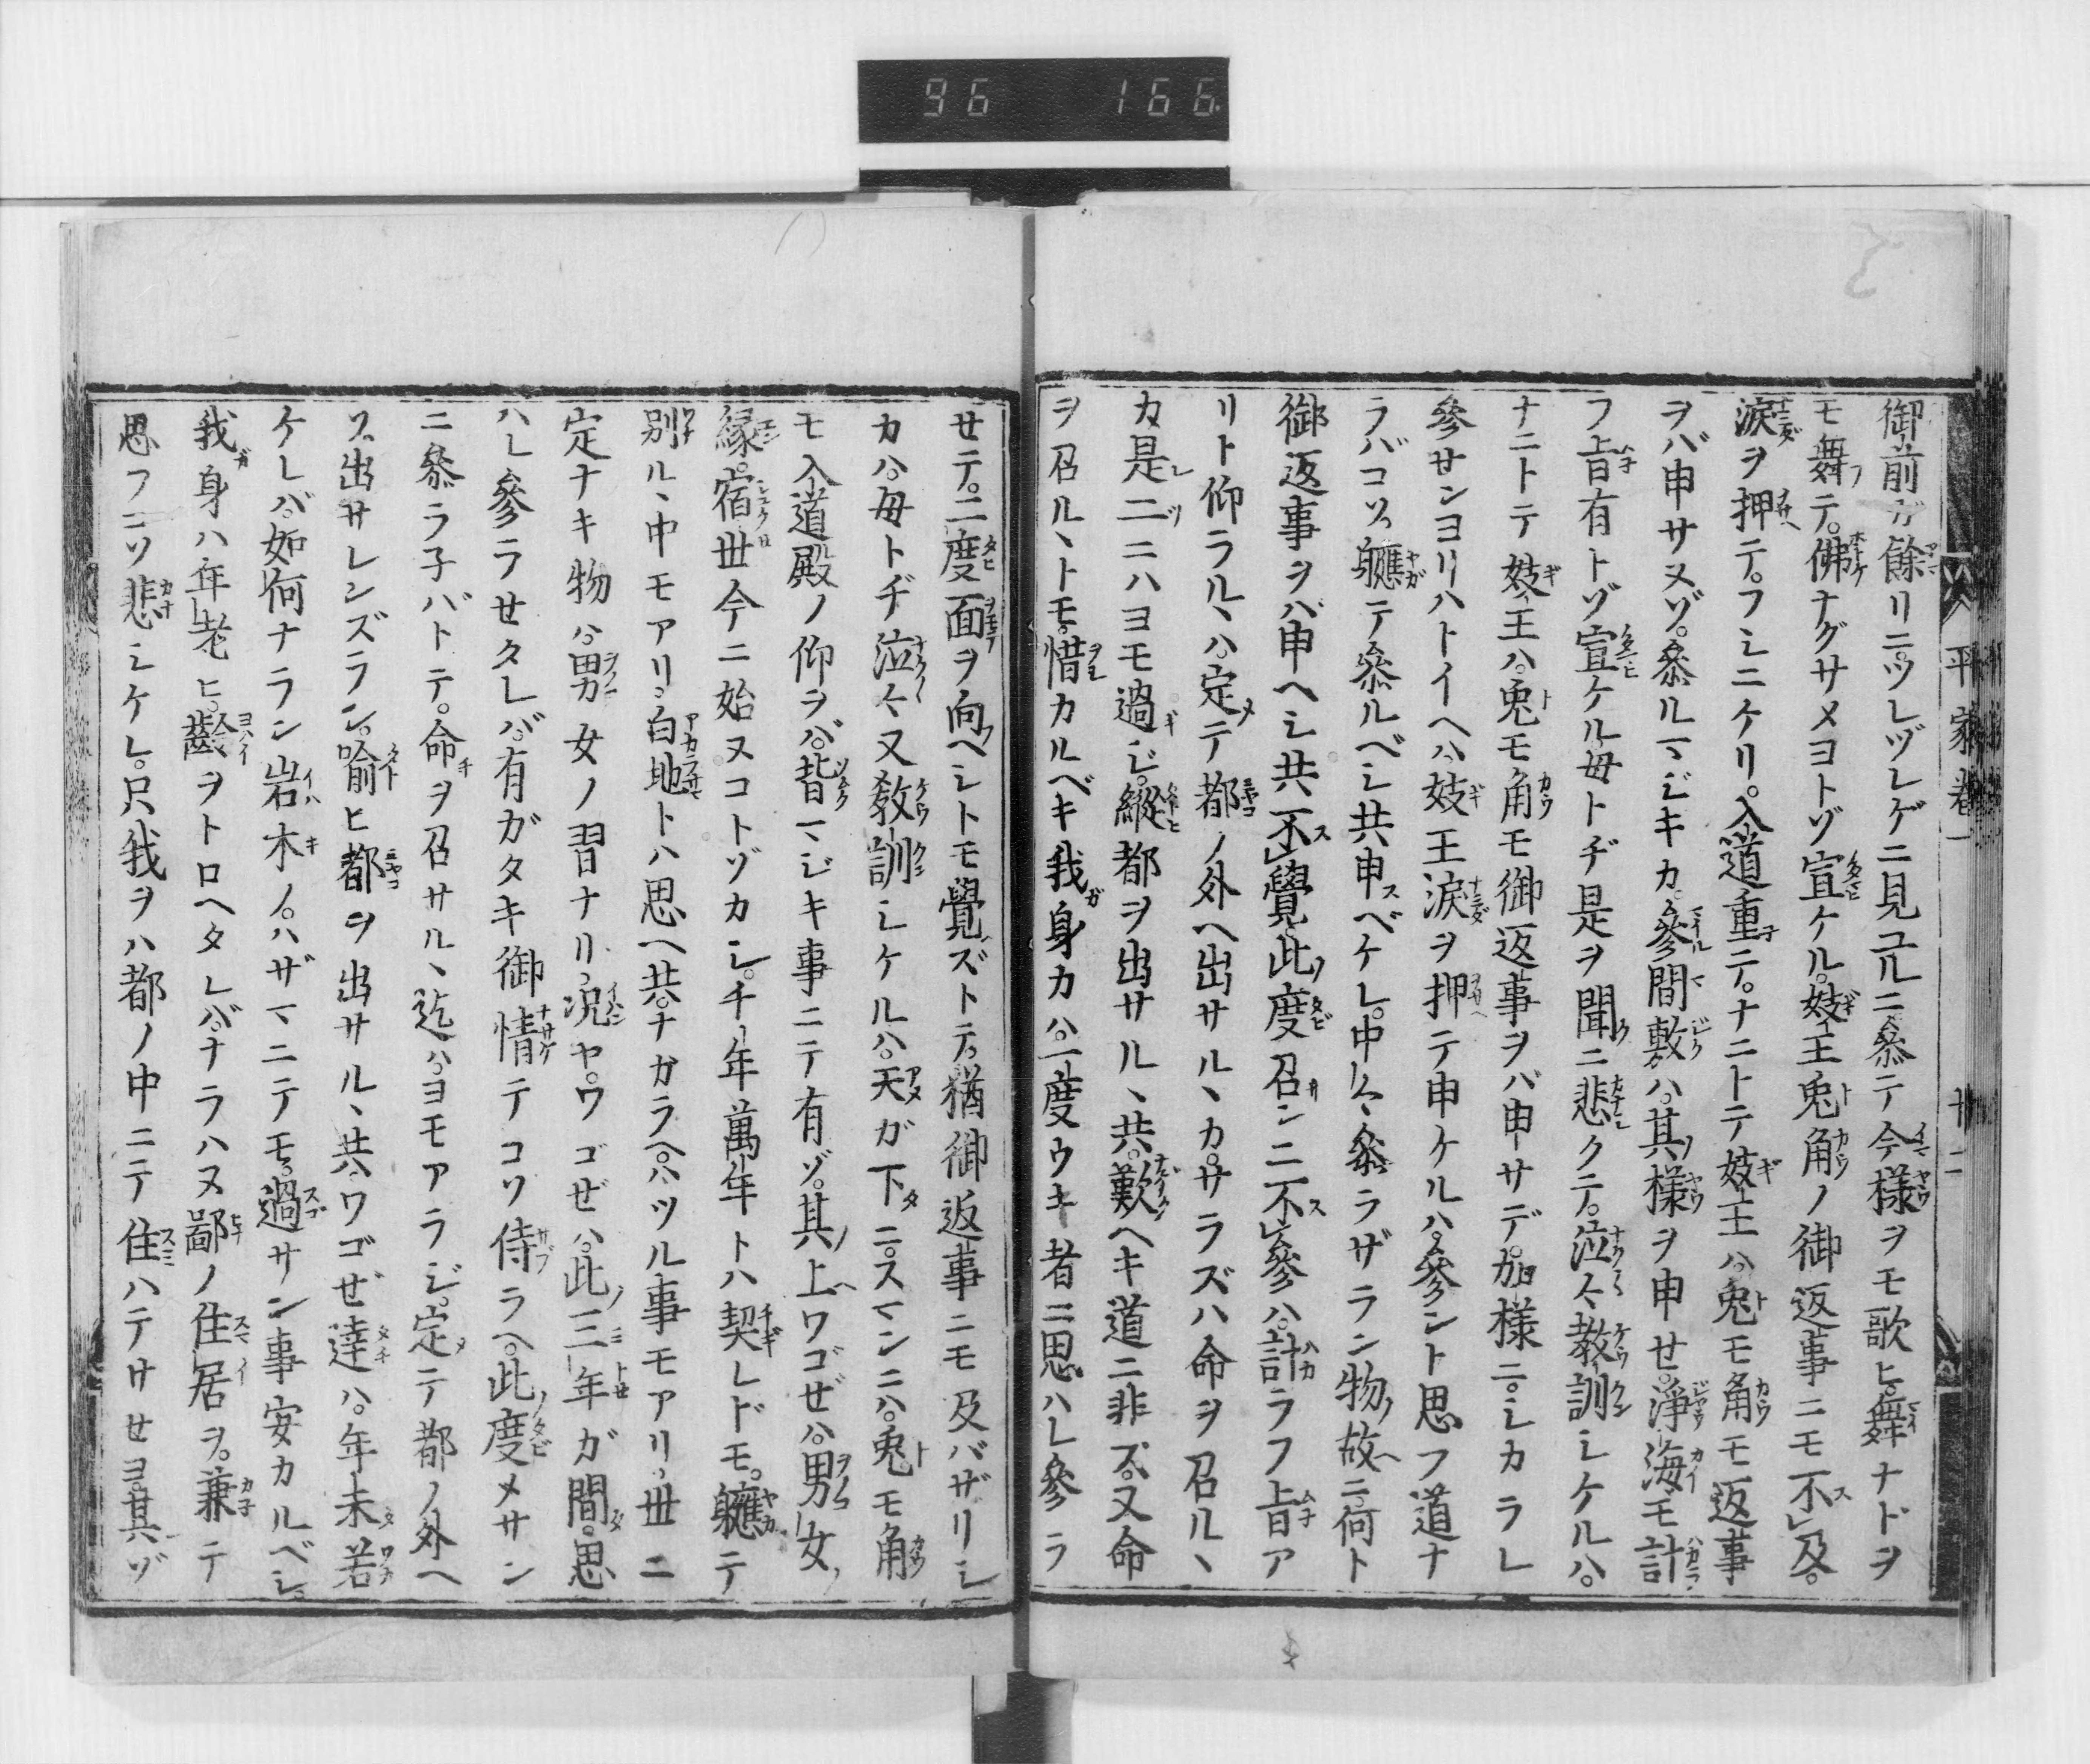 96 166
平家卷一
廿二
御前ガ餘リニツレヅレゲニ見ユルニ叅テ今様ヲモ歌ヒ舞ナドヲ
モ舞テ。佛ナグサメヨトゾ宣ケル。妓王兎角ノ御返事ニモ不及。
涙ヲ押テ。フシニケリ。入道重テ。ナニトテ妓王ハ兎モ角モ返事
ヲバ申サヌゾ。叅ルマジキカ。參間敷ハ。其様ヲ申セ。淨海モ計
フ旨有トゾ宣ケル母トヂ是ヲ聞ニ悲クテ。泣々教訓シケルハ。
ナニトテ妓王ハ。兎モ角モ御返事ヲバ申サデ。加様ニ。シカラレ
參サンヨリハトイヘハ。妓王涙ヲ押テ申ケルハ。參ント思フ道ナ
ラバコソ。軈テ叅ルベシ共申ベケレ。中々叅ラザラン物故ニ。何ト
御返事ヲバ申ヘシ共不覺。此度召ンニ不參ハ。計ラフ旨ア
リト仰ラルヽハ。定テ都ノ外ヘ出サルヽカ。サラズハ命ヲ召ルヽ
カ是二ニハヨモ過ジ。縱都ヲ出サルヽ共。歎ヘキ道ニ非ズ。又命
ヲ召ルヽトモ。惜カルベキ我身カハ。一度ウキ者ニ思ハレ參ラ
セテ。二度面ヲ向ヘシトモ覺ズトテ。猶御返事ニモ及バザリシ
カハ。母トヂ泣々又教訓シケルハ。天ガ下ニ。スマンニハ。兎モ角
モ入道殿ノ仰ヲバ。背マジキ事ニテ有ゾ。其上ワゴゼハ。男女ノ
縁。宿世今ニ始ヌコトゾカシ。千年萬年トハ契レドモ。軈テ
別ルヽ中モアリ。白地トハ思ヘ共。ナガラヘ。ハツル事モアリ。世ニ
定ナキ物ハ。男女ノ習ナリ。況ヤ。ワゴゼハ。此三年ガ間。思
ハレ參ラセタレバ。有ガタキ御情テコソ侍ラヘ。此度メサン
ニ叅ラ子バトテ。命ヲ召サルヽ迄ハ。ヨモアラジ。定テ都ノ外ヘ
ソ。出サレンズラン。喩ヒ都ヲ出サルヽ共。ワゴゼ達ハ。年未若
ケレバ。如何ナラン岩木ノ。ハザマニテモ。過サン事安カルベシ。
我身ハ年老ヒ。齡ヲトロヘタレバ。ナラハヌ鄙ノ住居ヲ。兼テ
思フコソ悲シケレ。只我ヲハ都ノ中ニテ住ハテサセヨ。其ゾ